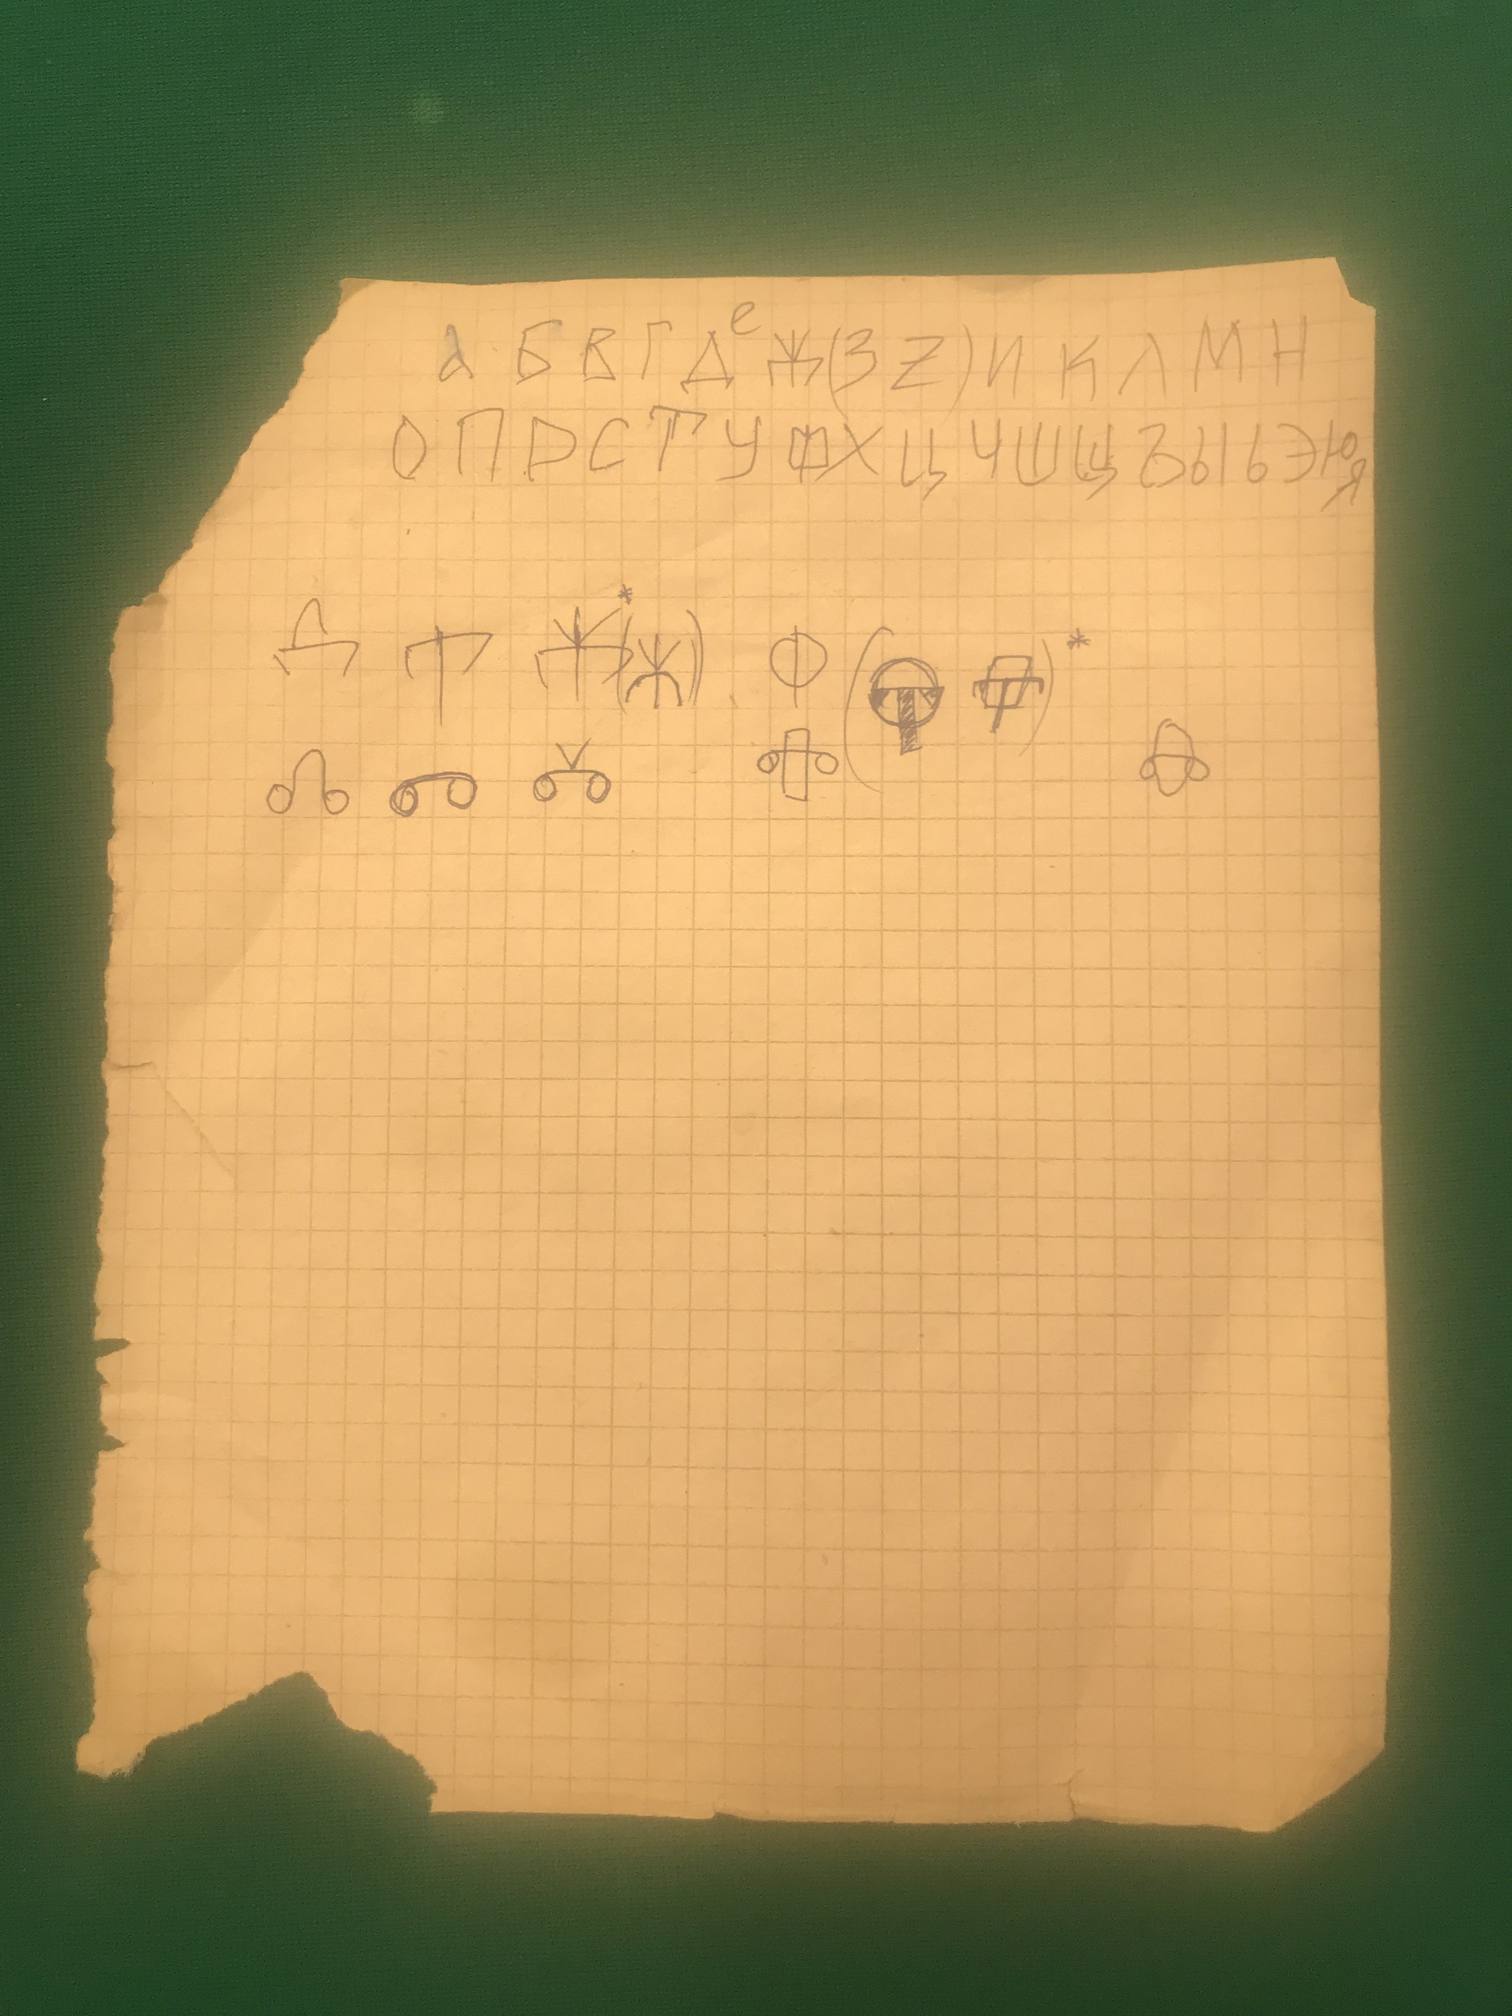 А Б В Г Д е Ж (З Z) И К Л М Н
О П Р С Т У Ф Х Ц Ч Ш Щ Ъ Ы Ь Э Ю Я
Д Т Ж* (Ж) Ф